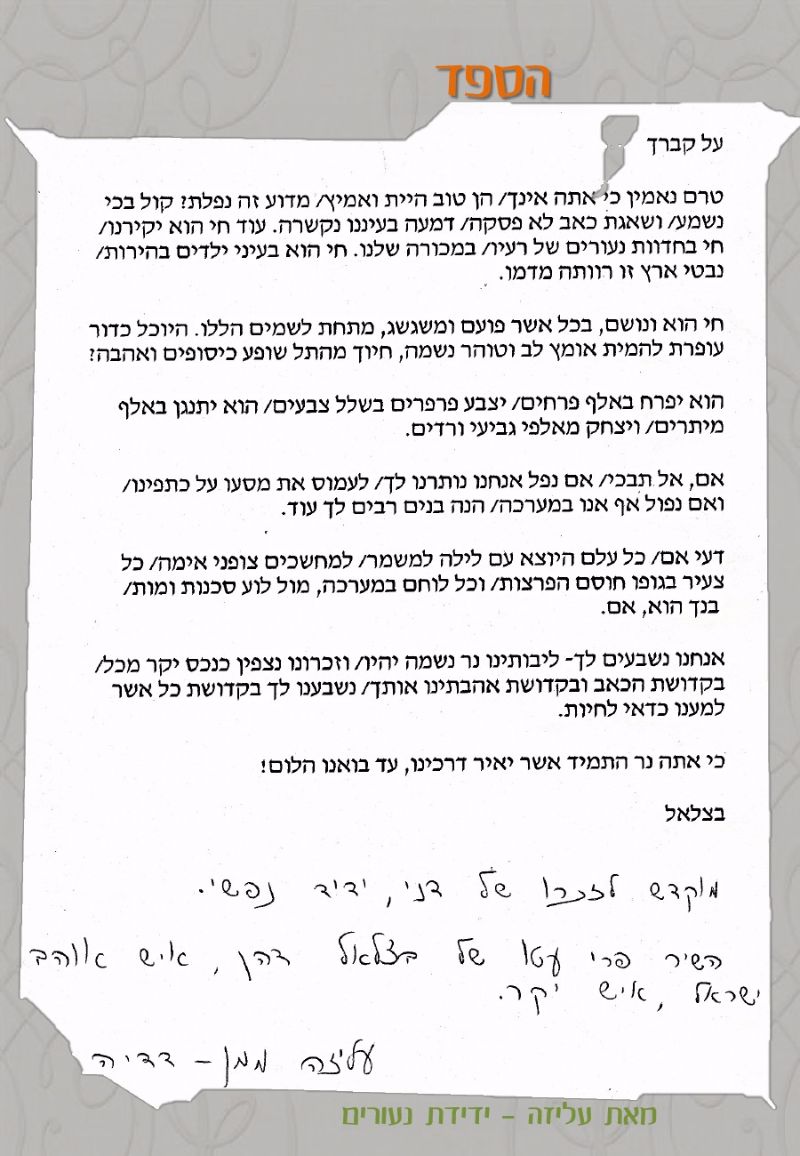 הספד
על קברך
טרם נאמין כי אתה אינך/ הן טוב היית ואמיץ/ מדוע זה נפלת? קול בכי
נשמע/ ושאגת כאב לא פסקה/ דמעה בעיננו נקשרה. עוד חי הוא יקירנו/
חי בחדוות נעורים של רעיו/ במכורה שלנו. חי הוא בעיני ילדים בהירות/
נבטי ארץ זו רוותה מדמו.
חי הוא ונושם, בכל אשר פועם ומשגשג, מתחת לשמים הללו. היוכל כדור
עופרת להמית אומץ לב וטוהר נשמה, חיוך מהתל שופע כיסופים ואהבה?
הוא יפרח באלף פרחים/ יצבע פרפרים בשלל צבעים/ הוא יתנגן באלף
מיתרים/ ויצחק מאלפי גביעי ורדים.
אם, אל תבכי/ אם נפל אנחנו נותרנו לך/ לעמוס את מסעו על כתפינו/
ואם נפול אף אנו במערכה/ הנה בנים רבים לך עוד.
דעי אם/ כל עלם היוצא עם לילה למשמר/ למחשכים צופני אימה/ כל
צעיר בגופו חוסם הפרצות/ וכל לוחם במערכה, מול לוע סכנות ומות/
בנך הוא, אם.
אנחנו נשבעים לך- ליבותינו נר נשמה יהיו/ וזכרונו נצפין כנכס יקר מכל/
בקדושת הכאב ובקדושת אהבתינו אותך/ נשבענו לך בקדושת כל אשר
למענו כדאי לחיות.
כי אתה נר התמיד אשר יאיר דרכינו, עד בואנו הלום!
בצלאל
מוקדש לזכרו של דני, ידיד נפשי.
השיר פרי עטו של בצלאל דהן, איש אוהב
ישראל, איש יקר.
עליזה ממן - דדיה
מאת עליזה - ידידת נעורים